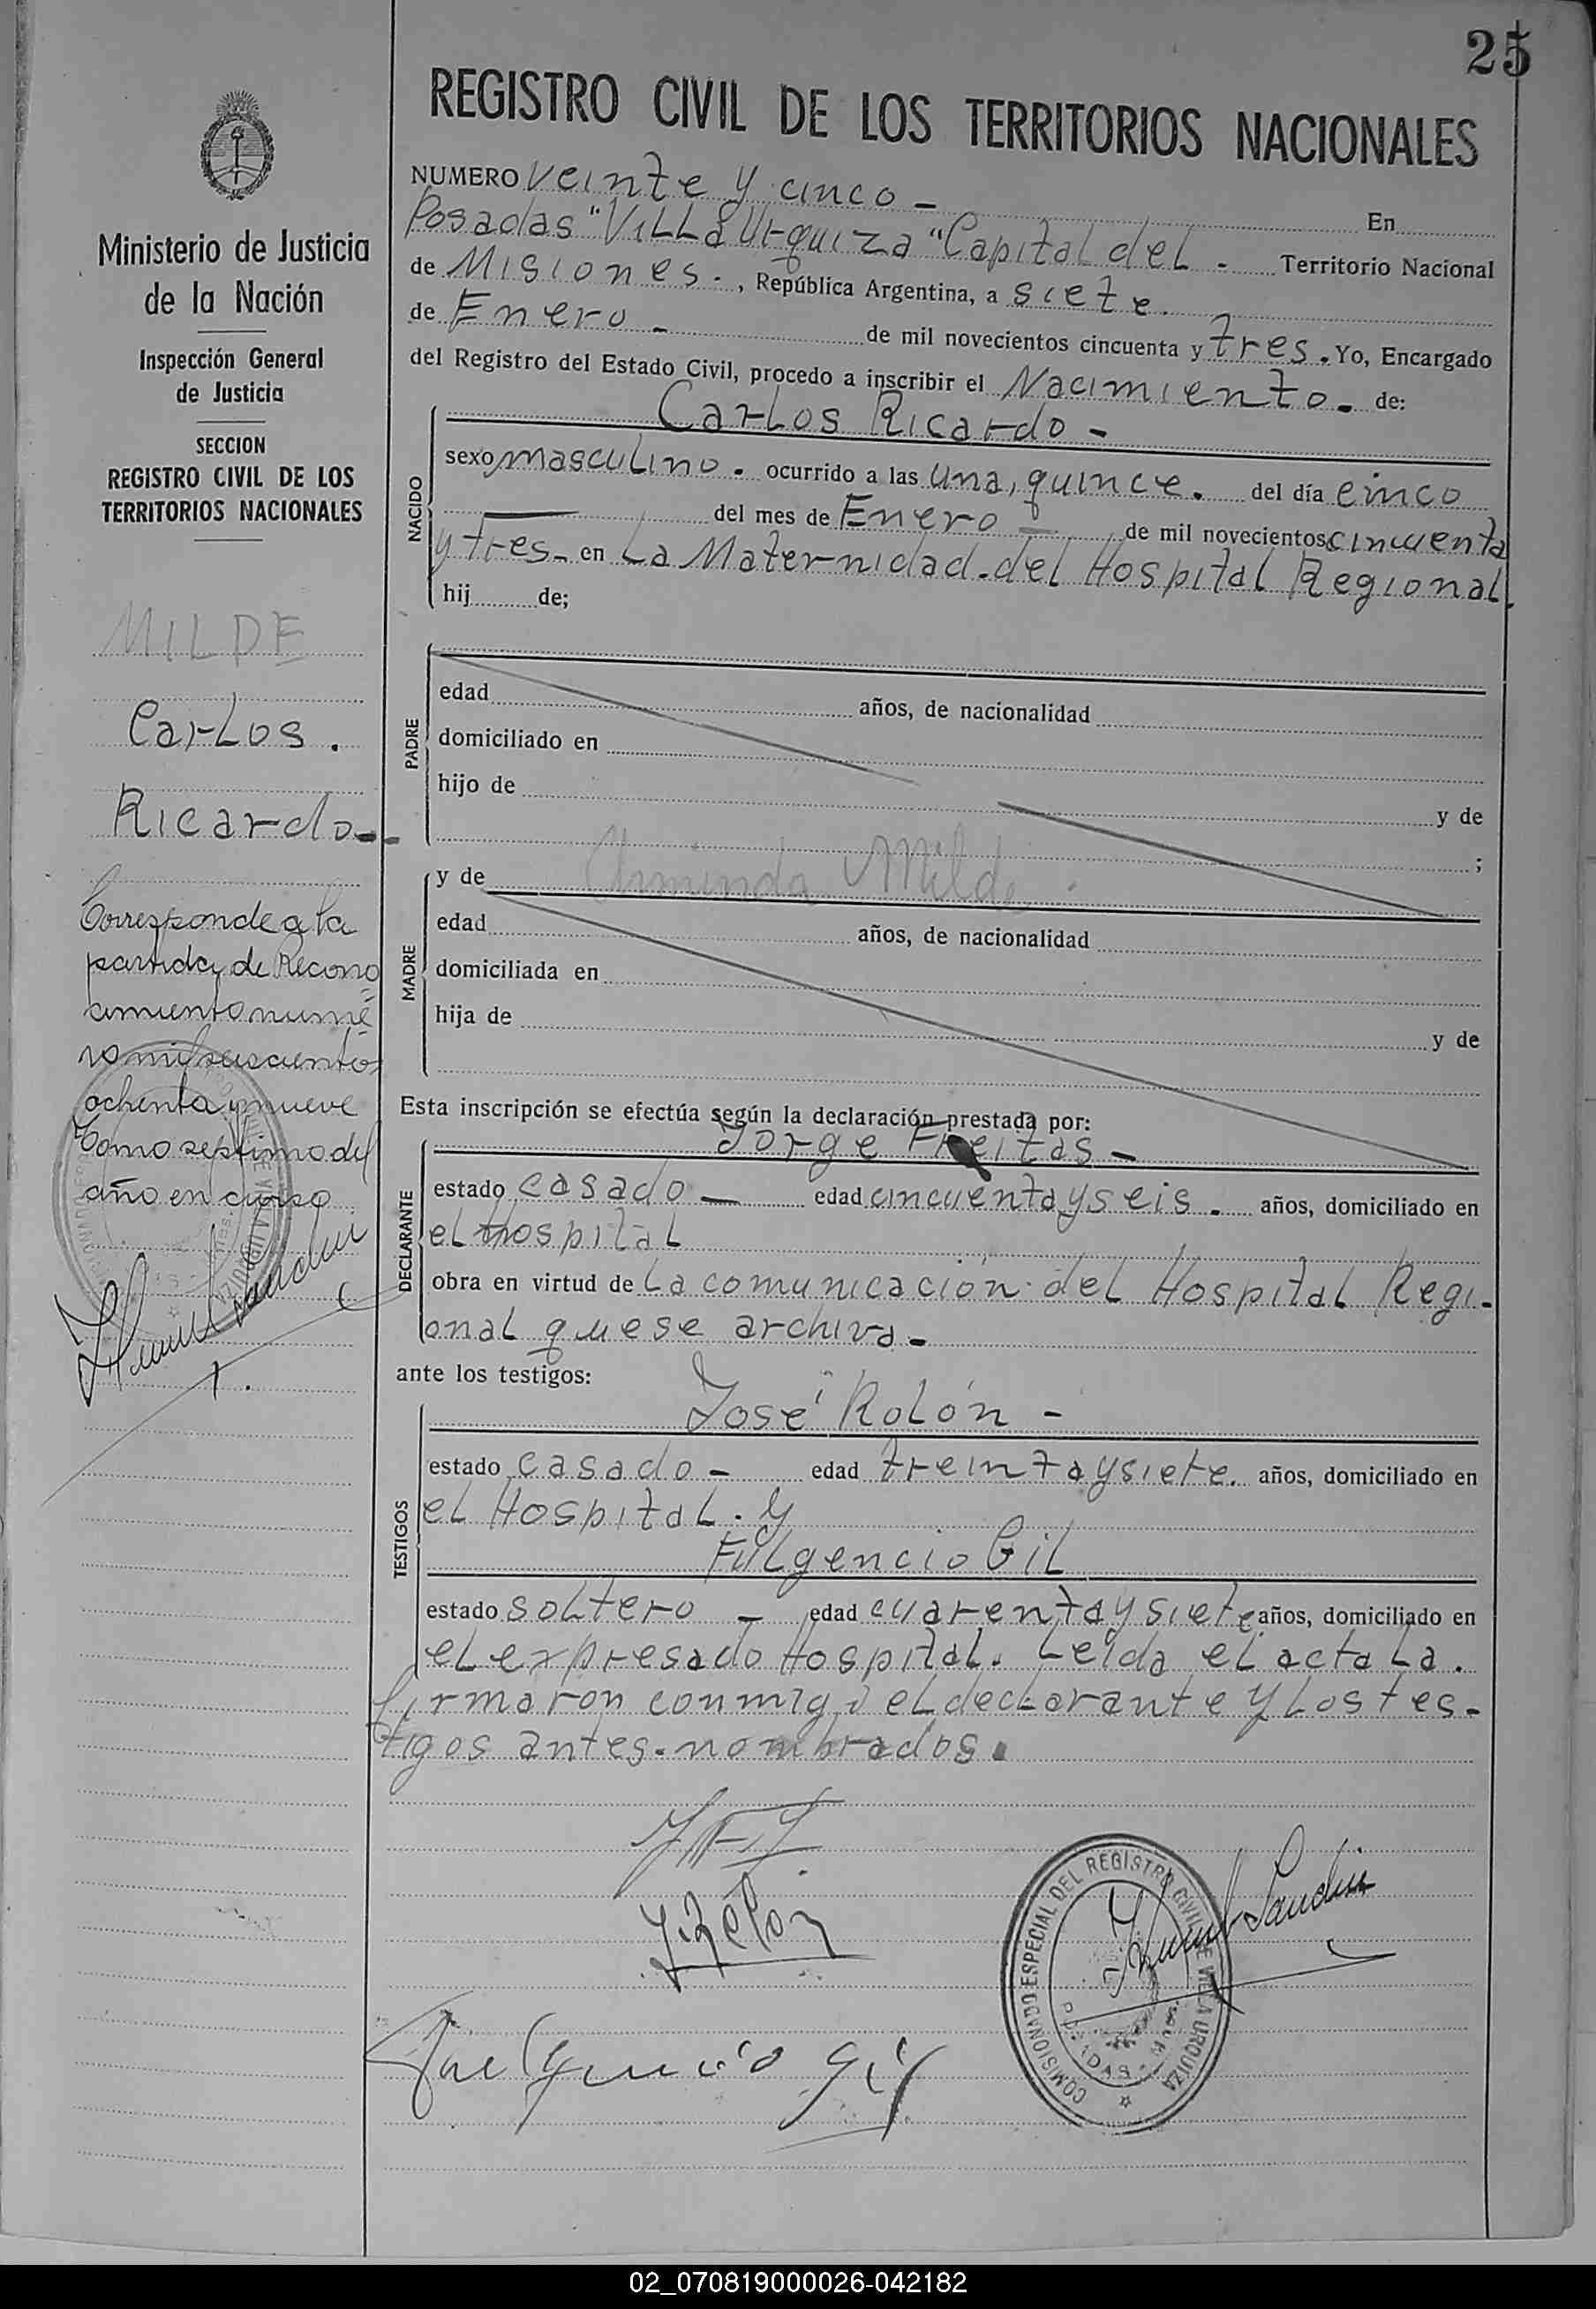 25
REGISTRO CIVIL DE LOS TERRITORIOS NACIONALES
NUMERO Veinte y cinco - En
Posadas "Villa Urquiza" Capital del - Territorio Nacional
de Misiones. , República Argentina, a siete.
de Enero - de mil novecientos cincuenta y tres. Yo, Encargado
del Registro del Estado Civil, procedo a inscribir el Nacimiento - de:
NACIDO
Carlos Ricardo -
sexo masculino. ocurrido a las una, quince. del día cinco
del mes de Enero - de mil novecientos cincuenta
y tres - en La Maternidad. del Hospital Regional.
hij de;
PADRE
edad años, de nacionalidad
domiciliado en
hijo de y de
;
MADRE
y de Arminda Milde.
edad años, de nacionalidad
domiciliada en
hija de y de
Esta inscripción se efectúa según la declaración prestada por:
DECLARANTE
Jorge Freitas -
estado casado - edad cincuenta y seis. años, domiciliado en
el Hospital
obra en virtud de La comunicación del Hospital Regi-
onal que se archiva -
ante los testigos:
TESTIGOS
José Rolón -
estado casado - edad treinta y siete. años, domiciliado en
el Hospital. y
Fulgencio Gil
estado soltero - edad cuarenta y siete años, domiciliado en
el expresado Hospital. Leída el acta la.
firmaron conmigo el declarante y los tes-
tigos antes. nombrados.
J. Rolón
Fuelgencio Gil
COMISIONADO ESPECIAL DEL REGISTRO CIVIL DE VILLA URQUIZA
POSADAS
Ministerio de Justicia
de la Nación
Inspección General
de Justicia
SECCION
REGISTRO CIVIL DE LOS
TERRITORIOS NACIONALES
MILDE
Carlos.
Ricardo -
Corresponde a la
partida de Recono
cimiento nume-
ro mil seiscientos
ochenta y nueve
Tomo septimo del
año en curso
02_070819000026-042182